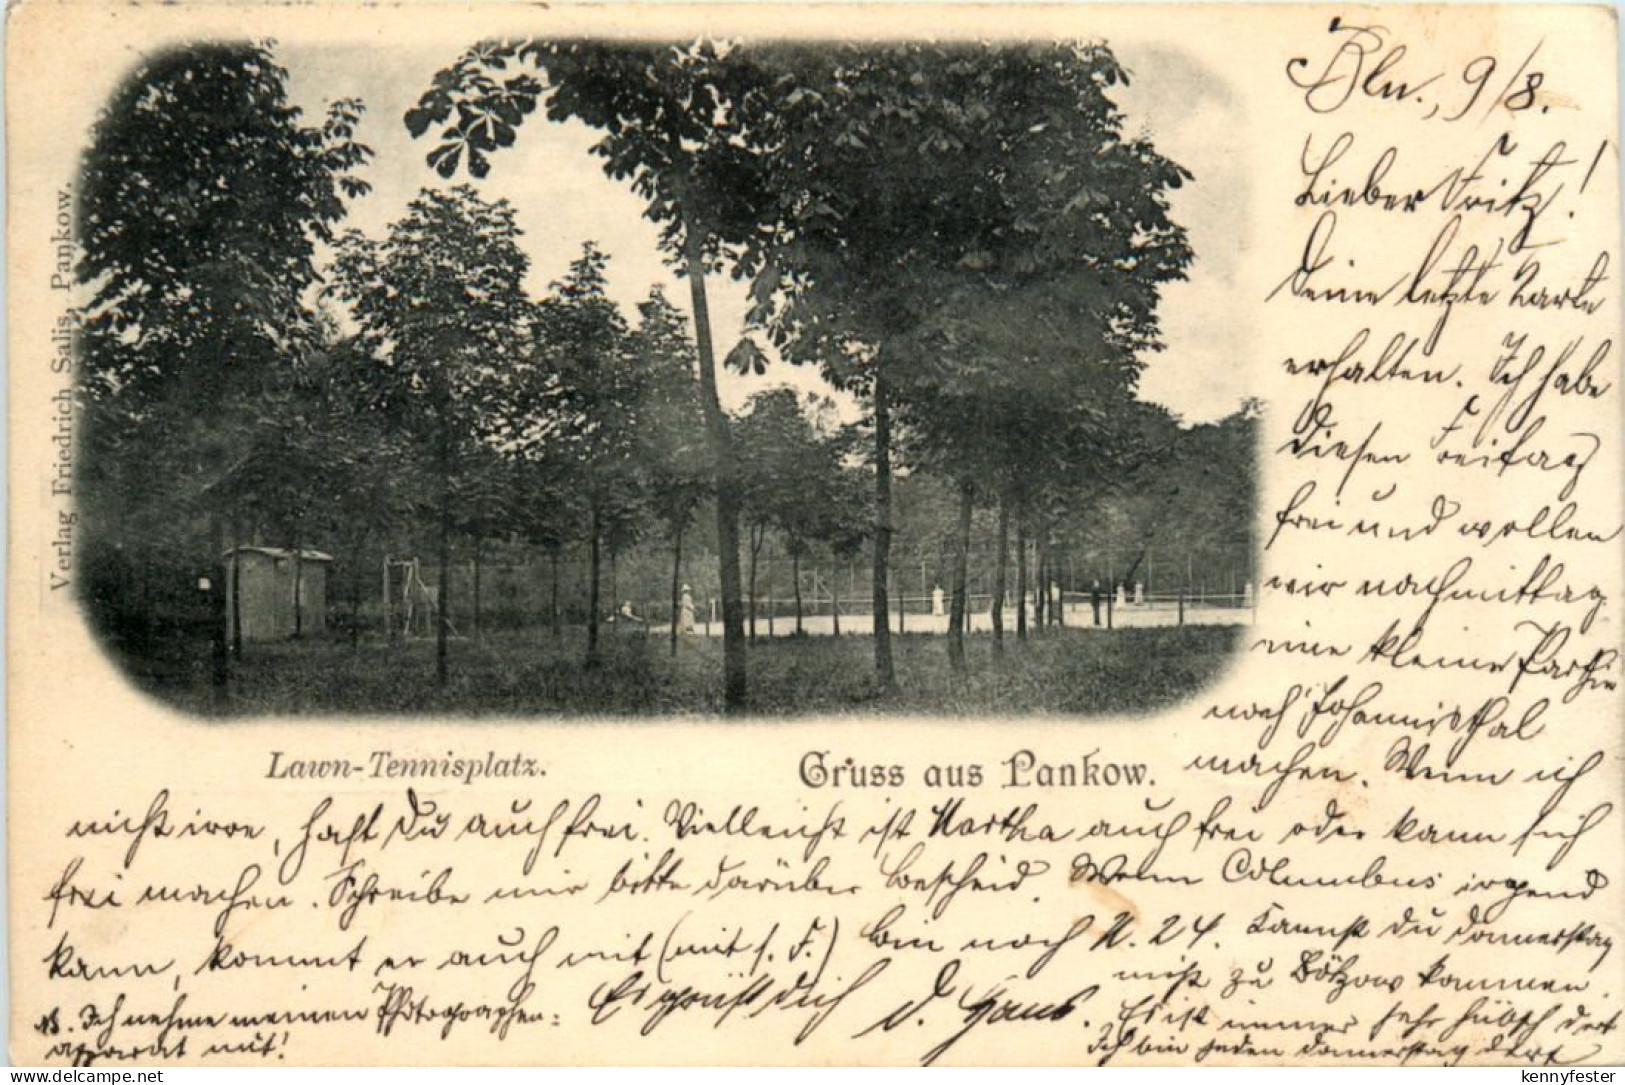 Verlag Friedrich Salis, Pankow.
Bln., 9/8.
Lieber Fritz!
Deine letzte Karte
erhalten. Ich habe
diesen Freitag
frei und wollen
wir nachmittag
eine kleine Parthie
nach Johannisthal
machen. Wenn ich
Lawn-Tennisplatz.
Gruss aus Pankow.
nicht irre, hast Du auch frei. Vielleicht ist Martha auch frei oder kann sich
frei machen. Schreibe mir bitte darüber bescheid. Wenn Columbus irgend
kann, kommt er auch mit (mit s. F.) bin noch N. 24. Kannst du donnerstag
nicht zu Bötzow kommen.
Es grüßt dich d. Hans.
Es ist immer sehr hübsch dort
Ich bin jeden donnerstag dort
NB. Ich nehme meinen Photographen-
apparat mit!
kennyfester